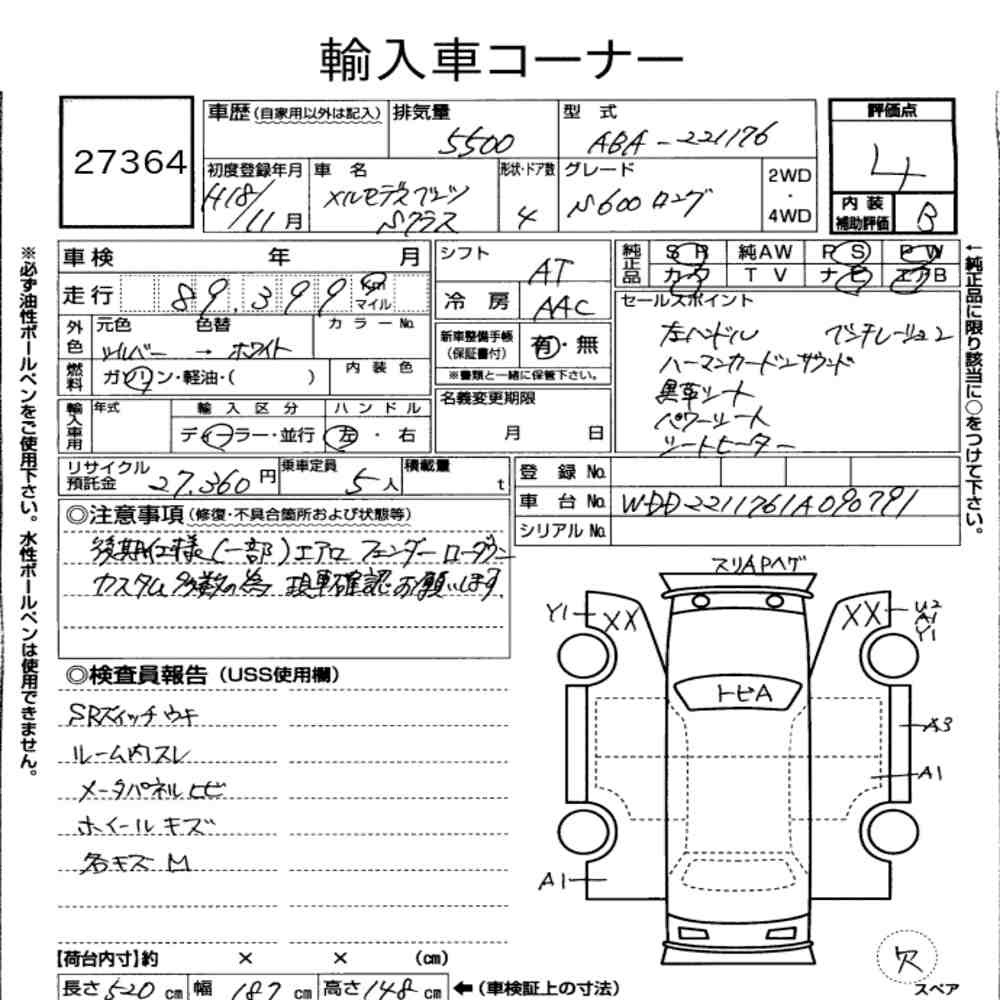 輸入車コーナー
27364
車歴(自家用以外は記入)
排気量 5500
型式 ABA-221176
評価点 4
初度登録年月 H18/11月
車名 メルセデスベンツ Sクラス
形状・ドア数 4
グレード S600ロング
2WD・4WD
内装補助評価 B
車検 年 月
走行 89,399 Km マイル
シフト AT
冷房 AAC
純正品 SR 純AW PS PW
カワ TV ナビ エアB
外色 元色 色替 カラーNo.
シルバー → ホワイト
燃料 ガソリン・軽油・( )
内装色
新車整備手帳(保証書付) 有・無
※書類と一緒に保管下さい。
名義変更期限 月 日
セールスポイント
左ハンドル ベンチレーション
ハーマンカードンサウンド
黒革シート
パワーシート
シートヒーター
輸入車用 年式 輸入区分 ハンドル
ディーラー・並行 左・右
リサイクル預託金 27,360円
乗車定員 5人
積載量 t
登録No.
車台No. WDD2211761A090791
シリアルNo.
◎注意事項(修復・不具合箇所および状態等)
後期仕様(一部)エアロ フェンダー ローダウン
カスタム多数の為 現車確認お願いします
◎検査員報告(USS使用欄)
SRスイッチウキ
ルーム内スレ
メータパネルヒビ
ホイールキズ
各キズM
スリAPハゲ
Y1 XX
XX U2 A1 Y1
トビA
A3
A1
A1
欠
スペア
【荷台内寸】約 × × (cm)
長さ520cm 幅187cm 高さ148cm ←(車検証上の寸法)
※必ず油性ボールペンをご使用下さい。水性ボールペンは使用できません。
←純正品に限り該当に○をつけて下さい。